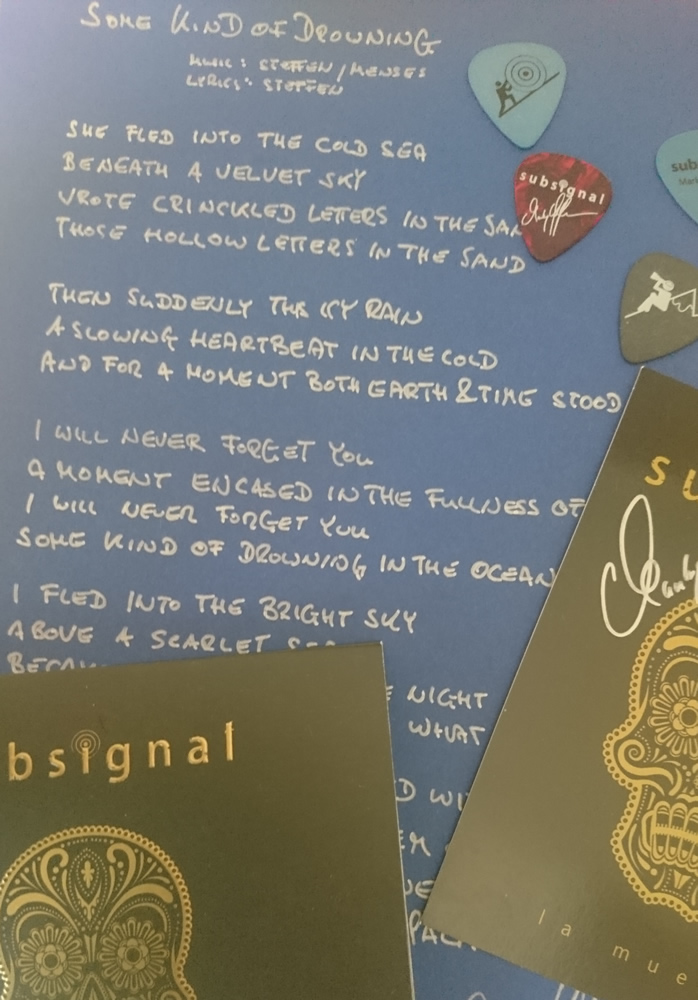 SOME KIND OF DROWNING
MUSIC: STEFFEN / MENSES
LYRICS: STEFFEN
SHE FLED INTO THE COLD SEA
BENEATH A VELVET SKY
VROTE CRINCKLED LETTERS IN THE SAN
THOSE HOLLOW LETTERS IN THE SAND
THEN SUDDENLY THE ICY RAIN
A SLOWING HEARTBEAT IN THE COLD
AND FOR A MOMENT BOTH EARTH & TIME STOOD
I WILL NEVER FORGET YOU
A MOMENT ENCASED IN THE FULLNESS OF
I WILL NEVER FORGET YOU
SOME KIND OF DROWNING IN THE OCEAN
I FLED INTO THE BRIGHT SKY
ABOVE A SCARLET
NIGHT
WHAT
subsignal
sub
su
bsignal
la mue